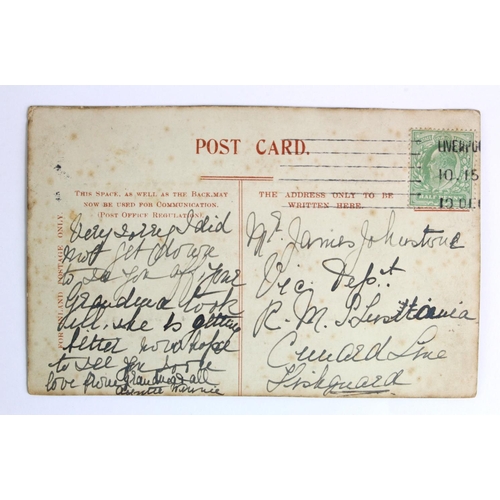 POST CARD.
LIVERPOO
10.15
19 DEC
THIS SPACE, AS WELL AS THE BACK, MAY
NOW BE USED FOR COMMUNICATION.
(POST OFFICE REGULATION)
THE ADDRESS ONLY TO BE
WRITTEN HERE.
FOR INLAND POSTAGE ONLY
Very sorry I did
not get down
to see you off your
Grandma took
ill, she is getting
better now hope
to see you soon
love from Grandma & all
Auntie
Mr James Johnstone
Vic. Dept.
R. M. S Lusitania
Cunard Line
Fishguard